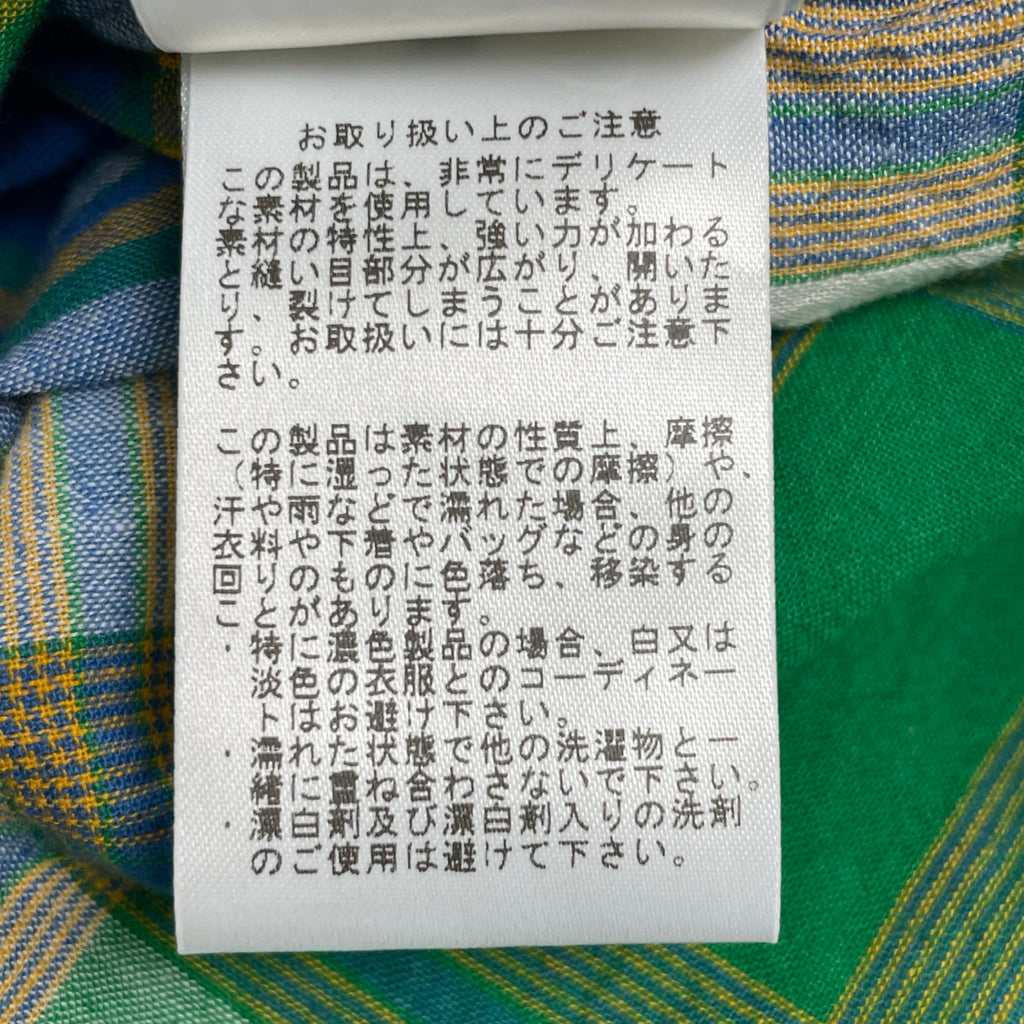 お取り扱い上のご注意
この製品は、非常にデリケート
な素材を使用しています。
素材の特性上、強い力が加わる
と縫い目部分が広がり、開いた
り、裂けてしまうことがありま
す。お取扱いには十分ご注意下
さい。
この製品は素材の性質上、摩擦
(特に湿った状態での摩擦)や、
汗や雨などで濡れた場合、他の
衣料や下着やバッグなど、身の
回りのものに色落ち、移染する
ことがあります。
・特に濃色製品の場合、白又は
淡色の衣服とのコーディネー
トはお避け下さい。
・濡れた状態で他の洗濯物と一
緒にお重ね合わさないで下さい。
・漂白剤及び漂白剤入りの洗剤
のご使用は避けて下さい。